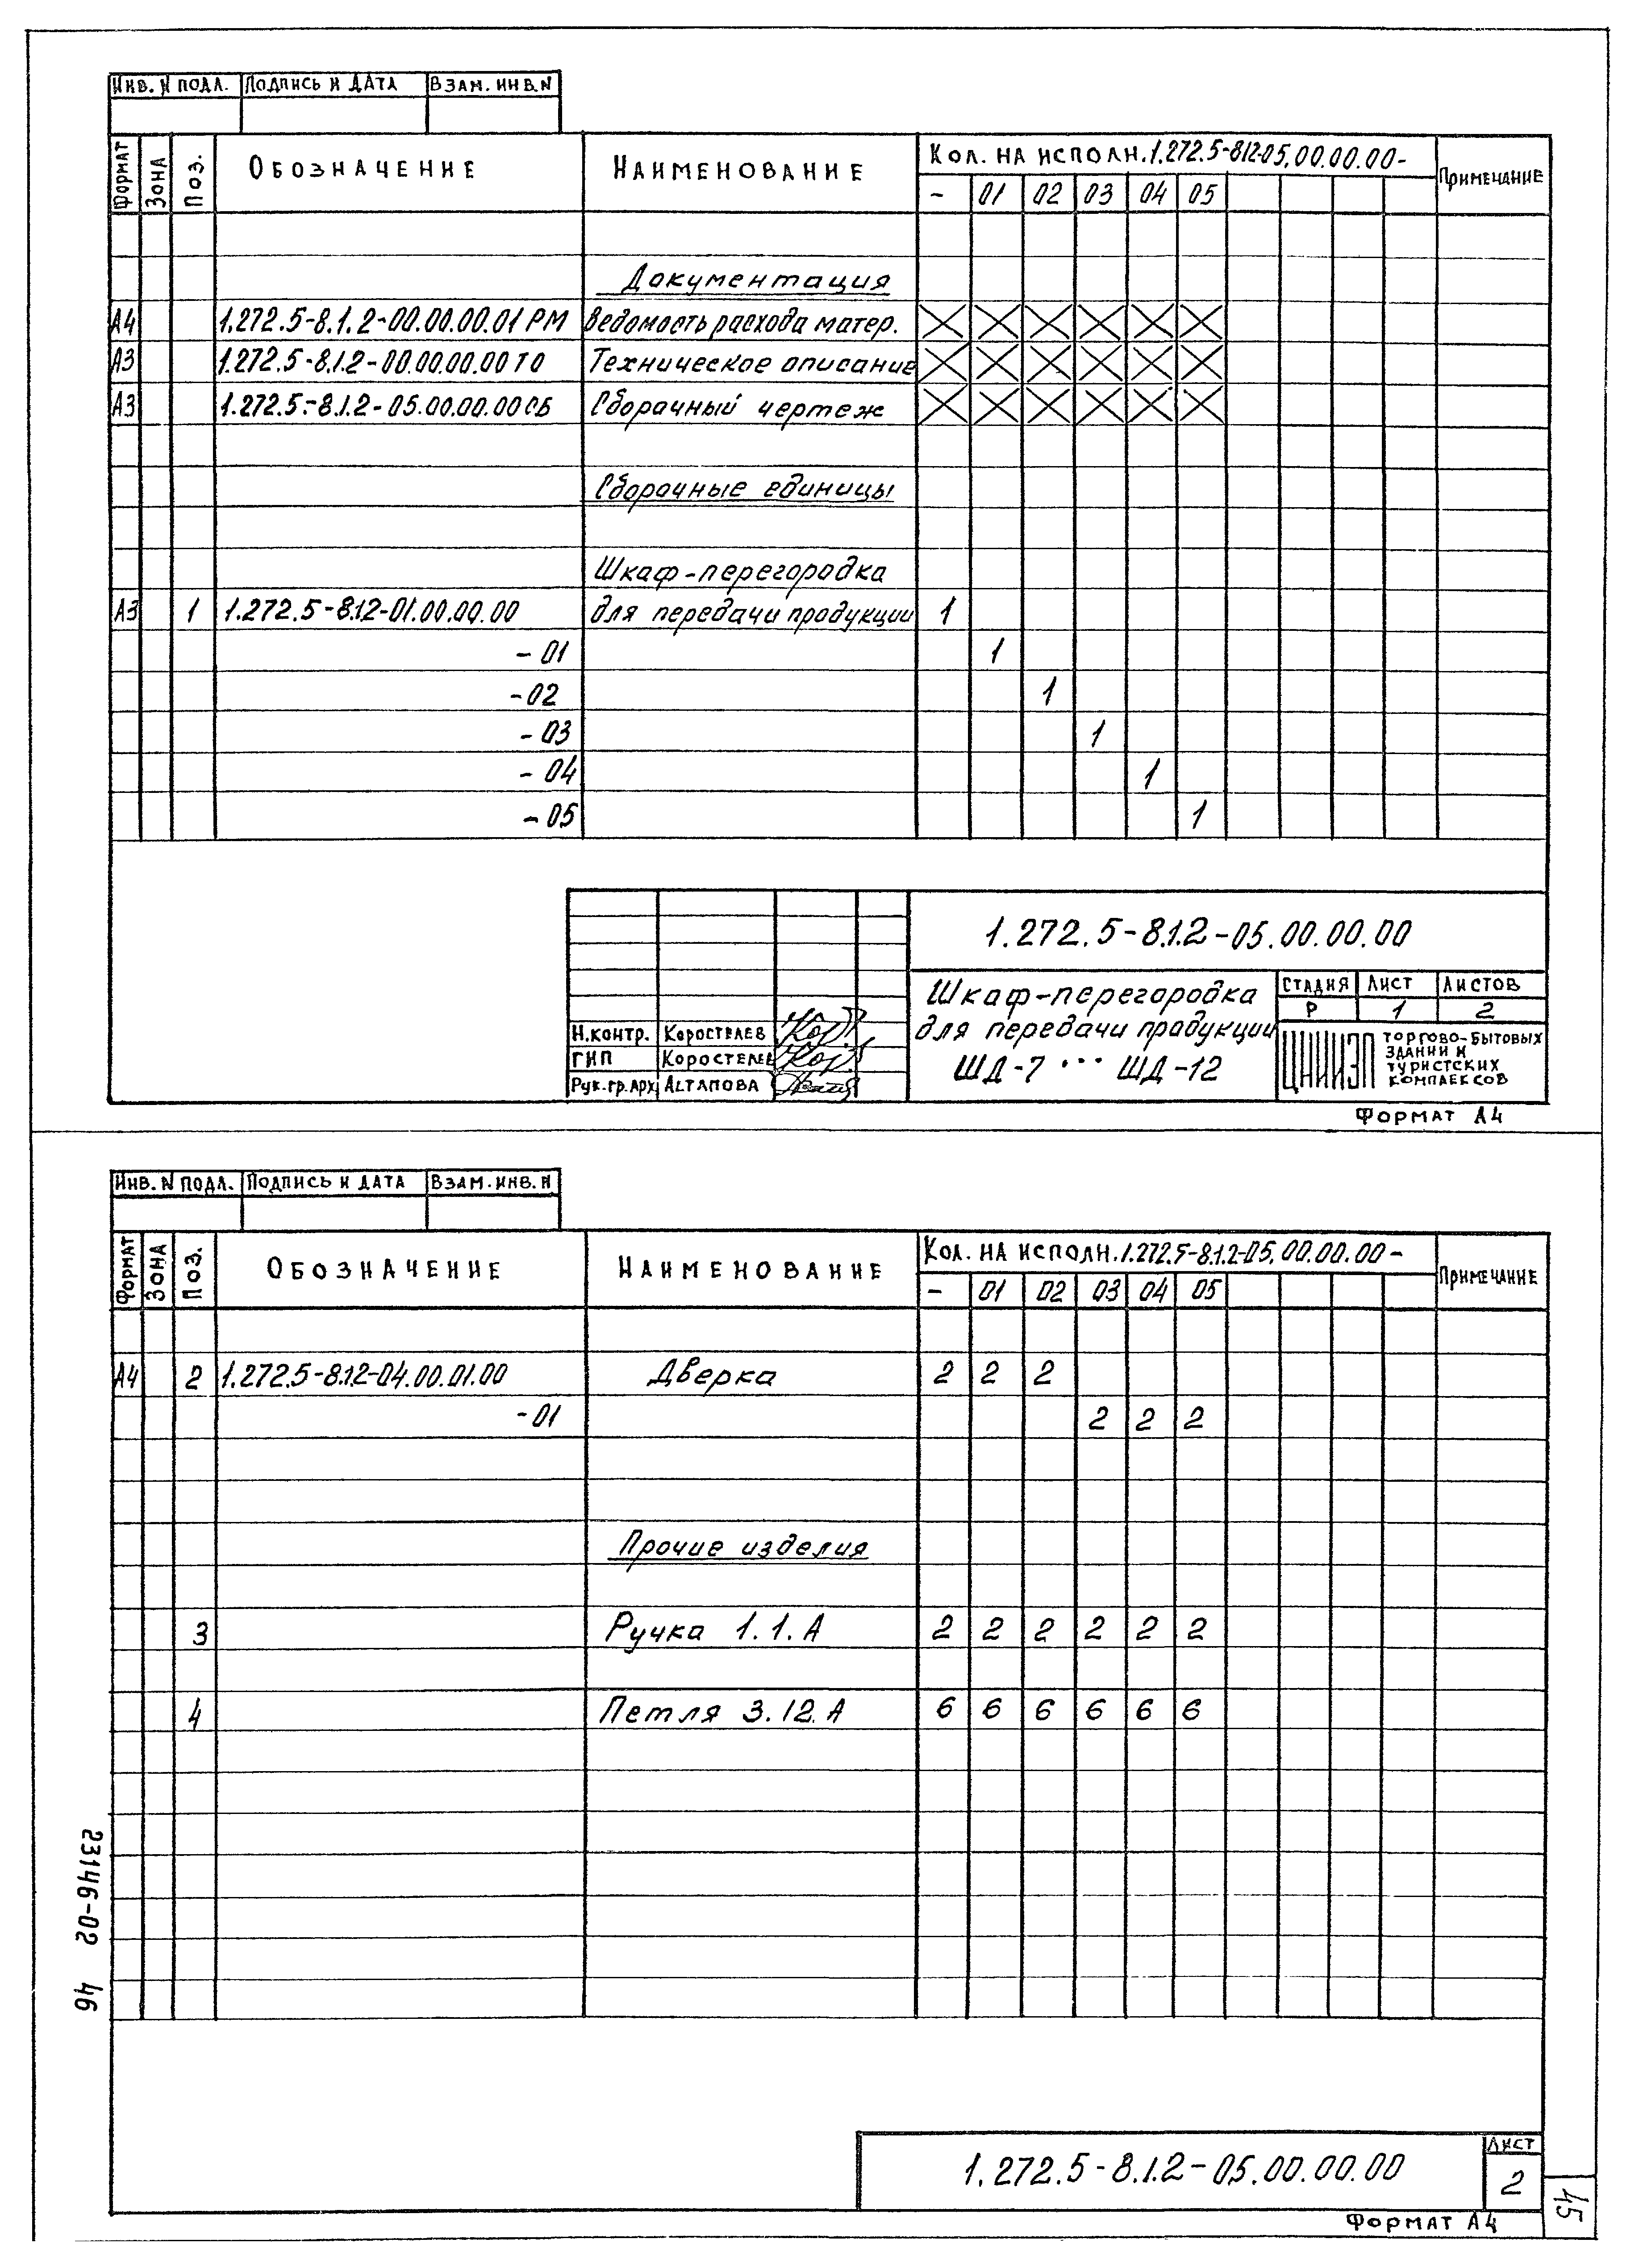 Инв. N подл. Подпись и дата Взам. инв. N
Формат Зона Поз. Обозначение Наименование Кол. на исполн. 1.272.5-8.1.2-05.00.00.00- Примечание
- 01 02 03 04 05
Документация
А4 1.272.5-8.1.2-00.00.00.01 РМ Ведомость расхода матер.
А3 1.272.5-8.1.2-00.00.00.00 ТО Техническое описание
А3 1.272.5-8.1.2-05.00.00.00 СБ Сборачный чертеж
Сборачные единицы
Шкаф-перегородка
А3 1 1.272.5-8.1.2-01.00.00.00 для передачи продукции 1
- 01 1
- 02 1
- 03 1
- 04 1
- 05 1
1.272.5-8.1.2-05.00.00.00
Шкаф-перегородка
для передачи продукции
ШД-7 ... ШД-12
Стадия Лист Листов
Р 1 2
Н.контр. Коростелев
ГИП Коростелев
Рук.гр.арх. Астапова
ЦНИИЭП торгово-бытовых
зданий и
туристских
комплексов
Формат А4
Инв. N подл. Подпись и дата Взам. инв. N
Формат Зона Поз. Обозначение Наименование Кол. на исполн. 1.272.5-8.1.2-05.00.00.00- Примечание
- 01 02 03 04 05
А4 2 1.272.5-8.1.2-04.00.01.00 Дверка 2 2 2
- 01 2 2 2
Прочие изделия
3 Ручка 1.1.А 2 2 2 2 2 2
4 Петля 3.12.А 6 6 6 6 6 6
23146-02 46
1.272.5-8.1.2-05.00.00.00
Лист
2
Формат А4
45